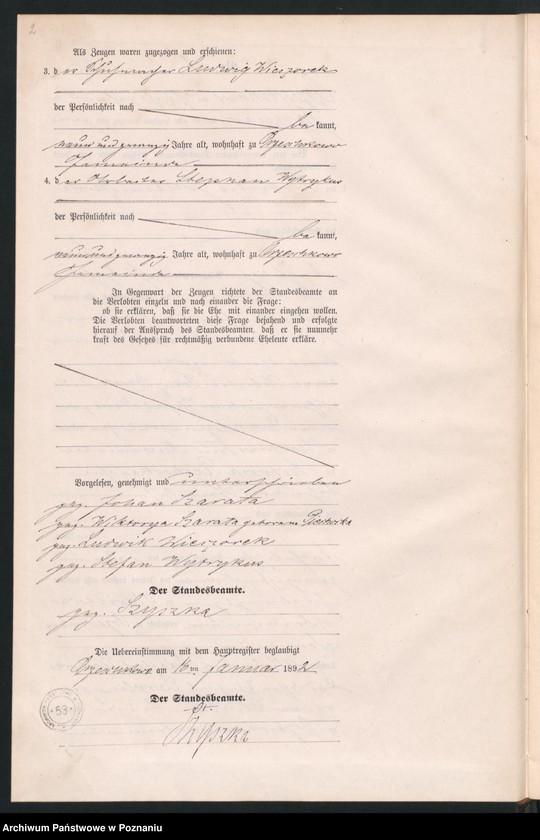 2
Als Zeugen waren zugezogen und erschienen:
3. d er Schuhmacher Ludwig Wieszorek
der Persönlichkeit nach
be kannt,
neun und zwanzig Jahre alt, wohnhaft zu
Gemeinde
4. d er Arbeiter Stephan Wytrykus
der Persönlichkeit nach
be kannt,
neunundzwanzig Jahre alt, wohnhaft zu
Gemeinde
In Gegenwart der Zeugen richtete der Standesbeamte an
die Verlobten einzeln und nach einander die Frage:
ob sie erklären, daß sie die Ehe mit einander eingehen wollen.
Die Verlobten beantworteten diese Frage bejahend und erfolgte
hierauf der Ausspruch des Standesbeamten, daß er sie nunmehr
kraft des Gesetzes für rechtmäßig verbundene Eheleute erkläre.
Vorgelesen, genehmigt und unterschrieben
gez. Johan Szarata
gez. Wiktorya Szarata geborene
gez. Ludwik Wieszorek
gez. Stefan Wytrykus
Der Standesbeamte.
gez. Szyszka
Die Uebereinstimmung mit dem Hauptregister beglaubigt
am ten Januar 1892
Der Standesbeamte.
53
Szyszka
Archiwum Państwowe w Poznaniu